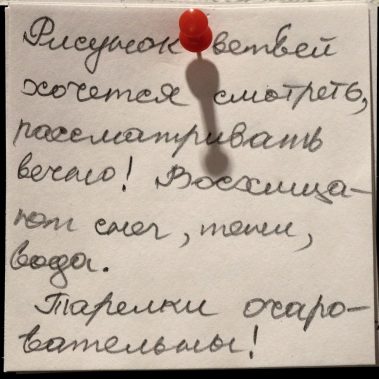 Рисунок ветвей
хочется смотреть,
рассматривать
вечно! Восхища-
ют снег, тени,
вода.
Тарелки очаро-
вательны!